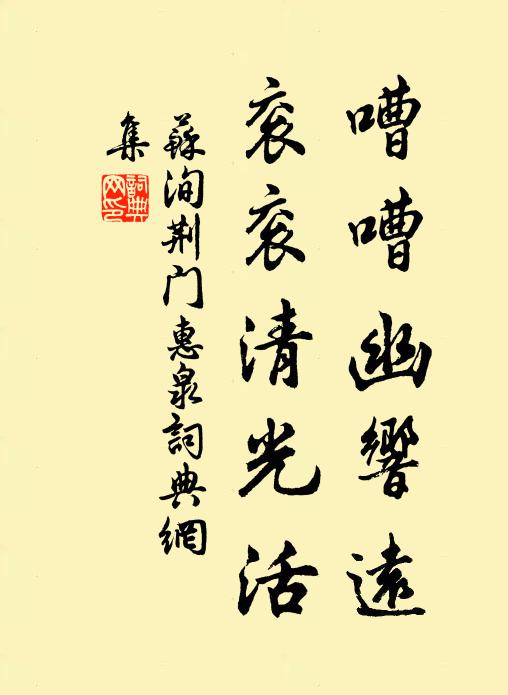 嘈嘈幽響遠
衮衮清光活
蘇洵荆门惠泉詞典網
集
詞典
网印